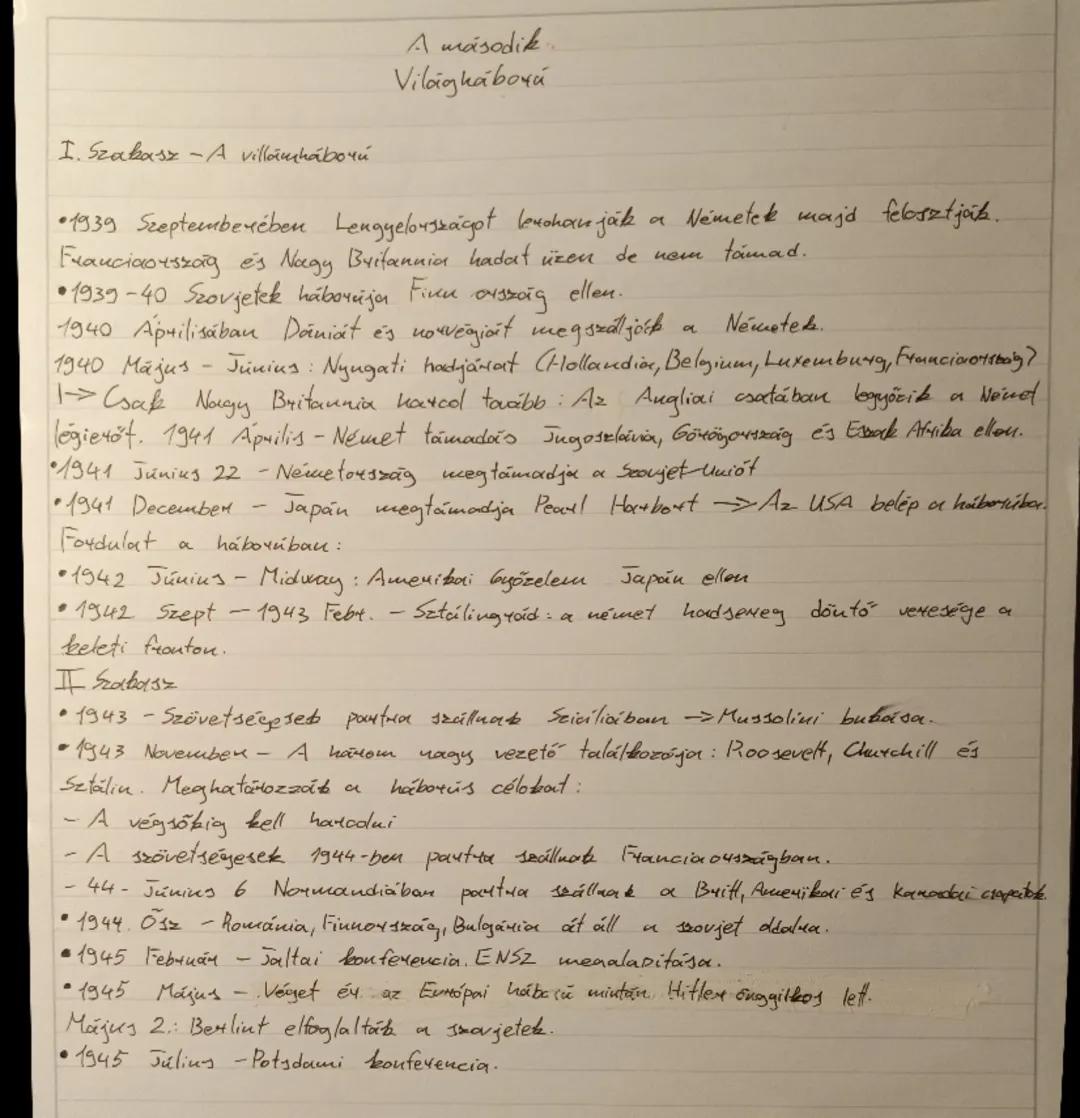 A második
Világháború
I. Szakasz - A villámháború
•1939 Szeptemberében Lengyelországot lerohanják a Németek majd felosztják.
Franciaország és Nagy Britannia hadat üzen de nem támad.
•1939-40 Szovjetek háborúja Finn ország ellen.
1940 Áprilisában Dániát és norvégiát megszállják a Németek.
1940 Május - Június: Nyugati hadjárat (Hollandia, Belgium, Luxemburg, Franciaország)
|-> Csak Nagy Britannia harcol tovább: Az Angliai csatában legyőzik a Német
légierőt. 1941 Április - Német támadás Jugoszlávia, Görögország és Észak Afrika ellen.
•1941 Június 22 - Németország megtámadja a Szovjet-Uniót
•1941 December - Japán megtámadja Pearl Harbort -> Az USA belép a háborúba.
Fordulat a háborúban:
•1942 Június - Midway: Amerikai Győzelem Japán ellen
•1942 Szept - 1943 Febr. - Sztálingrád: a német hadsereg döntő veresége a
keleti fronton.
II Szakasz
•1943 - Szövetségesek partra szállnak Szicíliában -> Mussolini bukása.
•1943 November - A három nagy vezető találkozója: Roosevelt, Churchill és
Sztálin. Meghatározzák a háborús célokat:
- A végsőkig kell harcolni
- A szövetségesek 1944-ben partra szállnak Franciaországban.
- 44 - Június 6 Normandiában partra szállnak a Britt, Amerikai és Kanadai csapatok
•1944. Ősz - Románia, Finnország, Bulgária át áll a szovjet oldalra.
•1945 Február - Jaltai konferencia. ENSZ megalapítása.
•1945 Május - Véget ér az Európai háború miután Hitler öngyilkos lett.
Május 2.: Berlint elfoglalták a szovjetek.
•1945 Július - Potsdami konferencia.